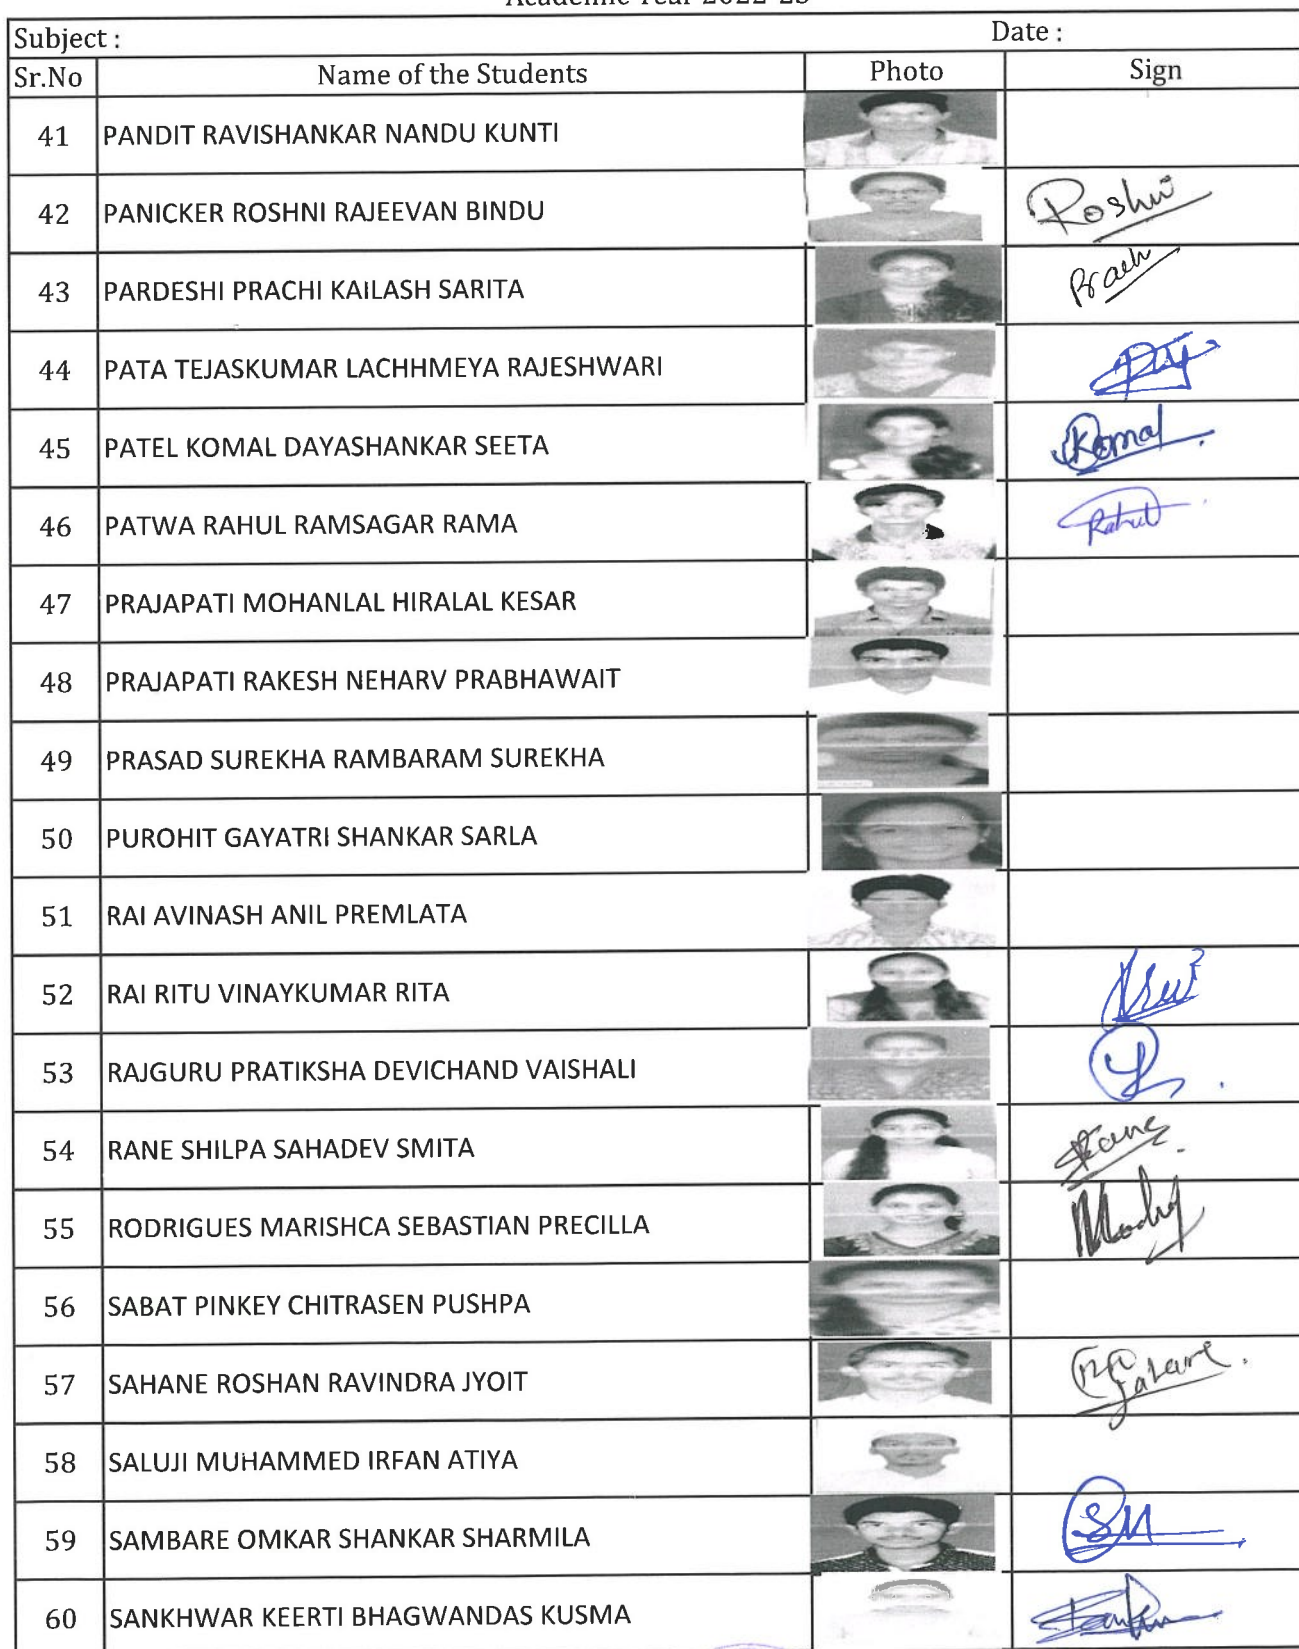 Academic Year 2022-23
Subject : Date :
Sr.No Name of the Students Photo Sign
41 PANDIT RAVISHANKAR NANDU KUNTI
42 PANICKER ROSHNI RAJEEVAN BINDU Roshni
43 PARDESHI PRACHI KAILASH SARITA Prachi
44 PATA TEJASKUMAR LACHHMEYA RAJESHWARI
45 PATEL KOMAL DAYASHANKAR SEETA Komal
46 PATWA RAHUL RAMSAGAR RAMA Rahul
47 PRAJAPATI MOHANLAL HIRALAL KESAR
48 PRAJAPATI RAKESH NEHARV PRABHAWAIT
49 PRASAD SUREKHA RAMBARAM SUREKHA
50 PUROHIT GAYATRI SHANKAR SARLA
51 RAI AVINASH ANIL PREMLATA
52 RAI RITU VINAYKUMAR RITA
53 RAJGURU PRATIKSHA DEVICHAND VAISHALI
54 RANE SHILPA SAHADEV SMITA Rane
55 RODRIGUES MARISHCA SEBASTIAN PRECILLA
56 SABAT PINKEY CHITRASEN PUSHPA
57 SAHANE ROSHAN RAVINDRA JYOIT
58 SALUJI MUHAMMED IRFAN ATIYA
59 SAMBARE OMKAR SHANKAR SHARMILA SM
60 SANKHWAR KEERTI BHAGWANDAS KUSMA